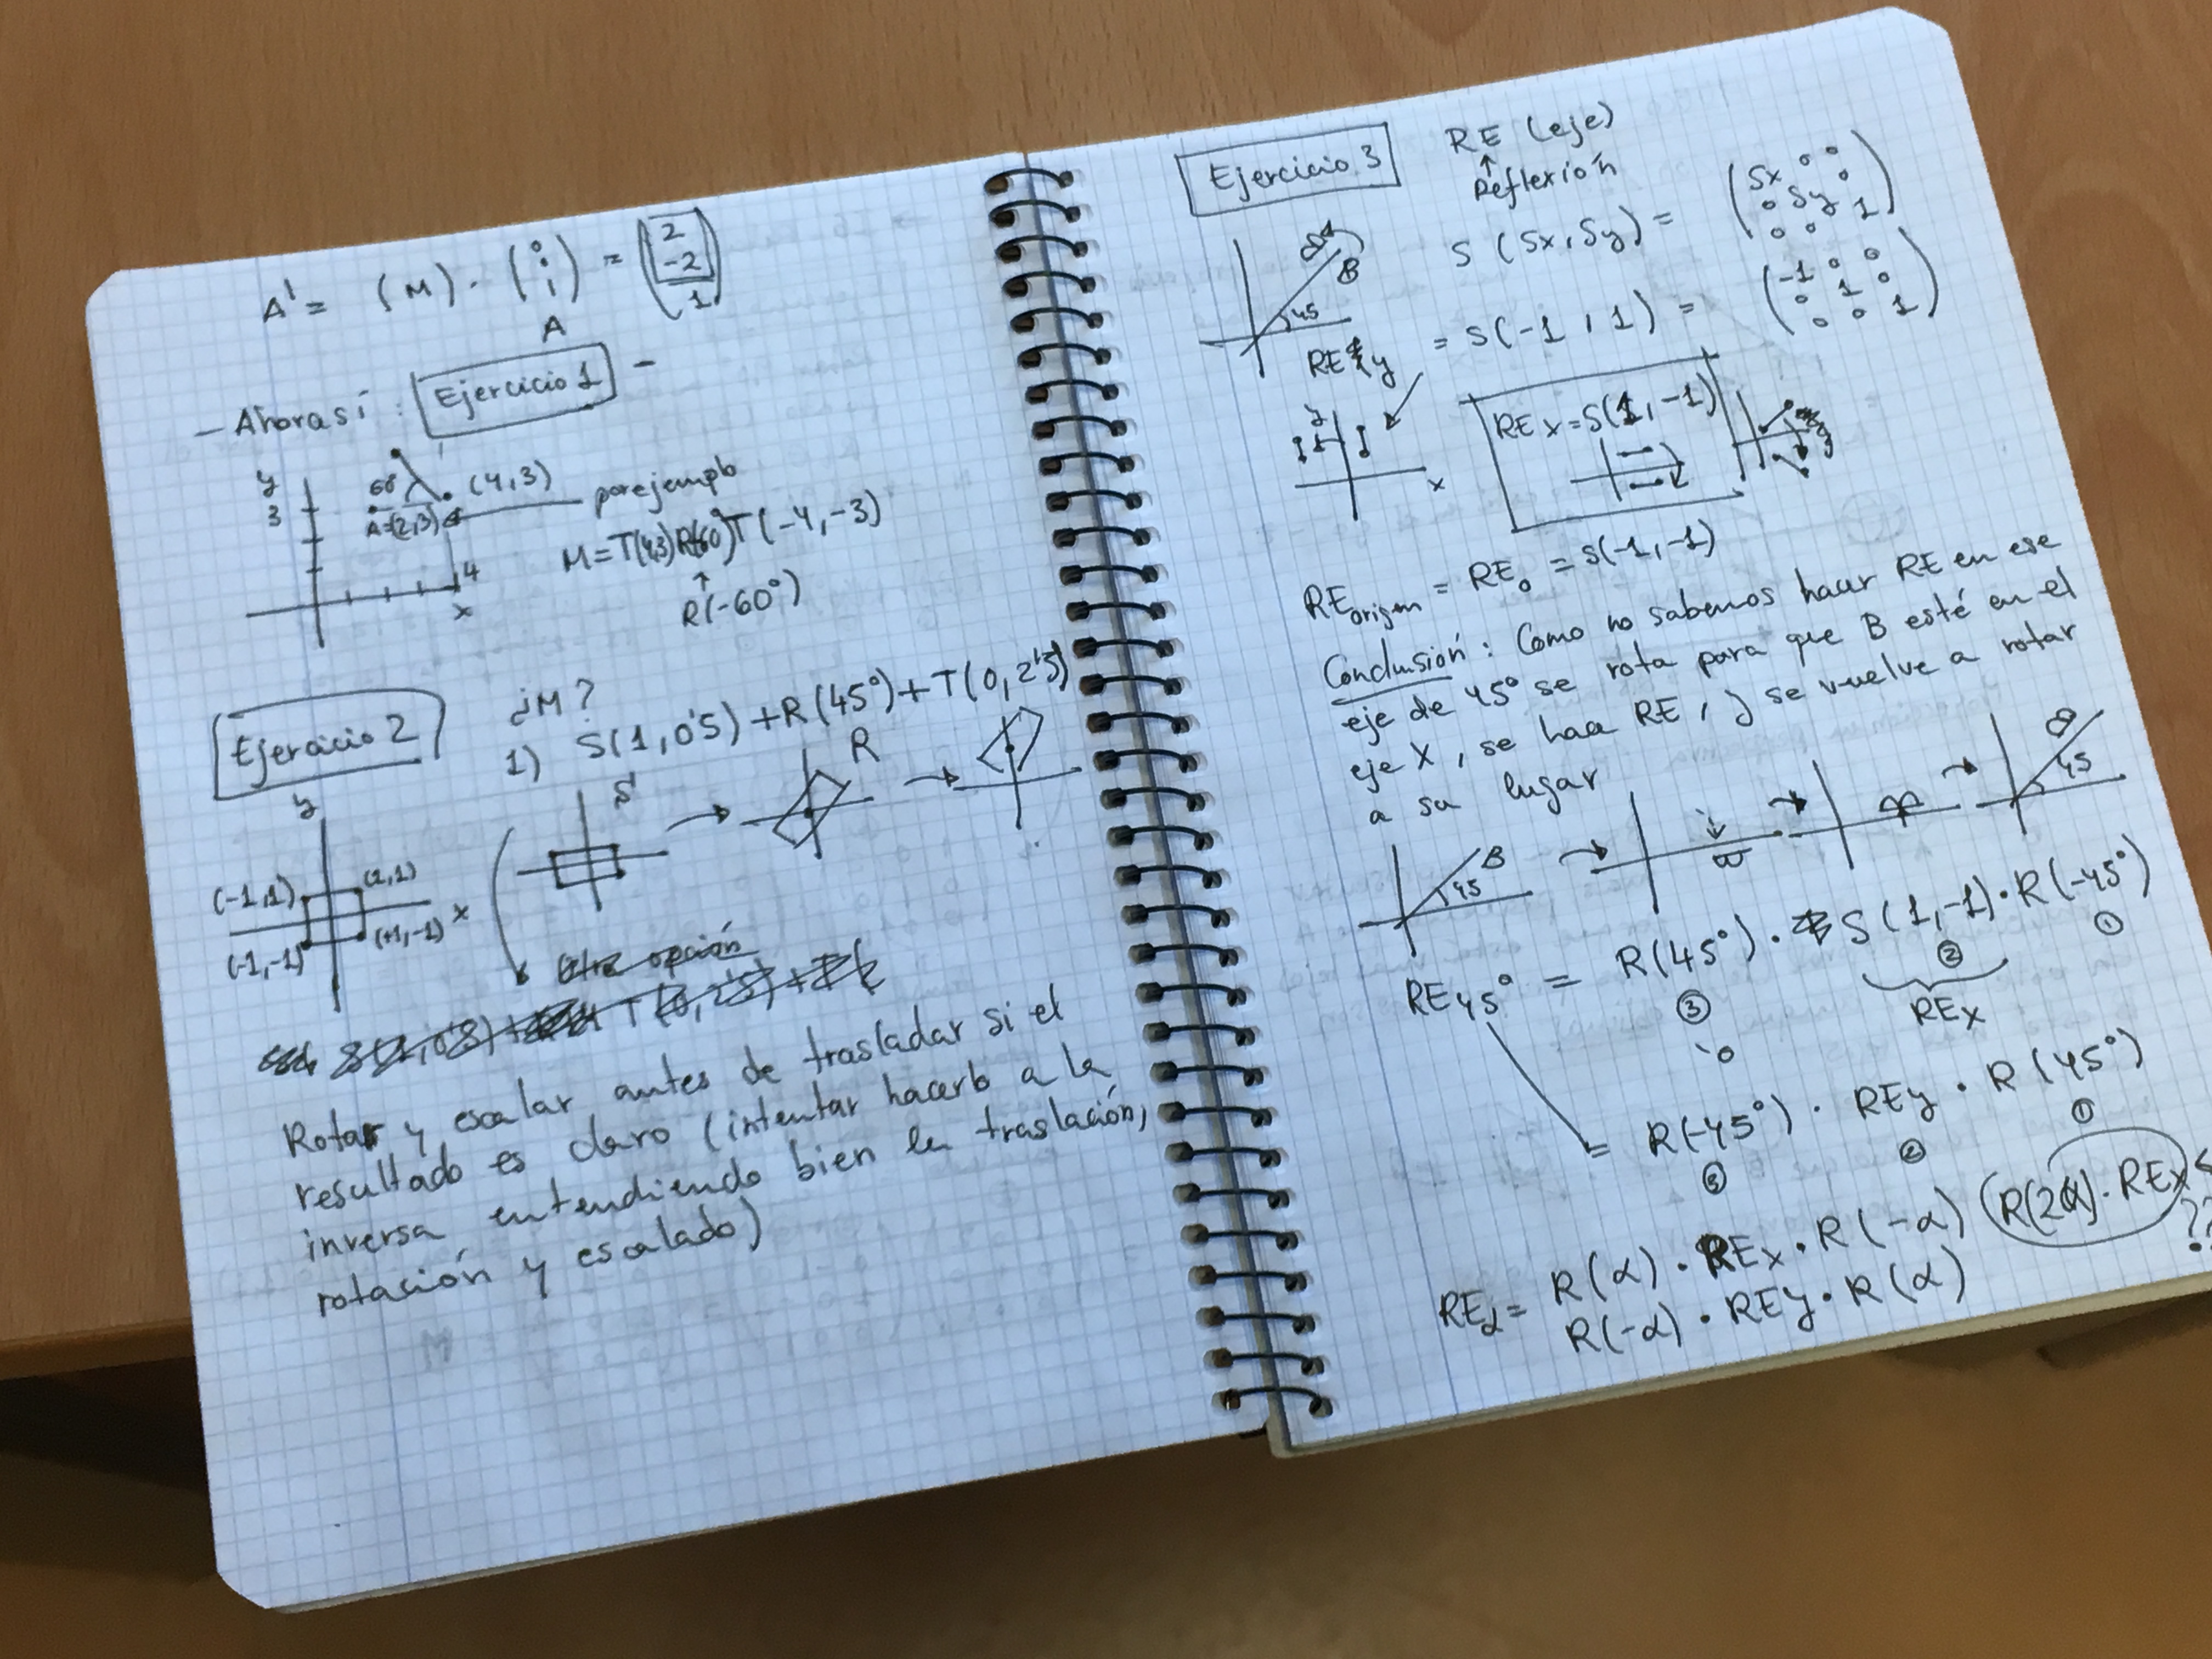 A' = (M) · (: 1) = (2 -2 1)
A
- Ahora sí : Ejercicio 1 -
y
3
60
(4,3)
por ejemplo
M = T(4,3) R(60°) T(-4,-3)
R(-60°)
4
x
Ejercicio 2
¿M?
1) S(1,0'5) + R(45°) + T(0,2'5)
y
(-1,1)
(1,1)
(-1,-1)
(+1,-1)
x
S
R
otra opción
Rotar y escalar antes de trasladar si el
resultado es claro (intentar hacerlo a la
inversa entendiendo bien la traslación,
rotación y escalado)
Ejercicio 3
RE (eje)
Reflexión
B
45
S(Sx,Sy) = (Sx 0 0 0 Sy 0 0 0 1)
REy = S(-1,1) = (-1 0 0 0 1 0 0 0 1)
y
x
REx = S(1,-1)
REorigen = RE0 = S(-1,-1)
Conclusión: Como no sabemos hacer RE en ese
eje de 45° se rota para que B esté en el
eje X, se hace RE, y se vuelve a rotar
a su lugar
B
45
45
RE45° = R(45°) · S(1,-1) · R(-45°)
③ ② ①
REx
= R(-45°) · REy · R(45°)
③ ② ①
REα = R(α) · REx · R(-α)
R(-α) · REy · R(α)
R(2α) · REx
??